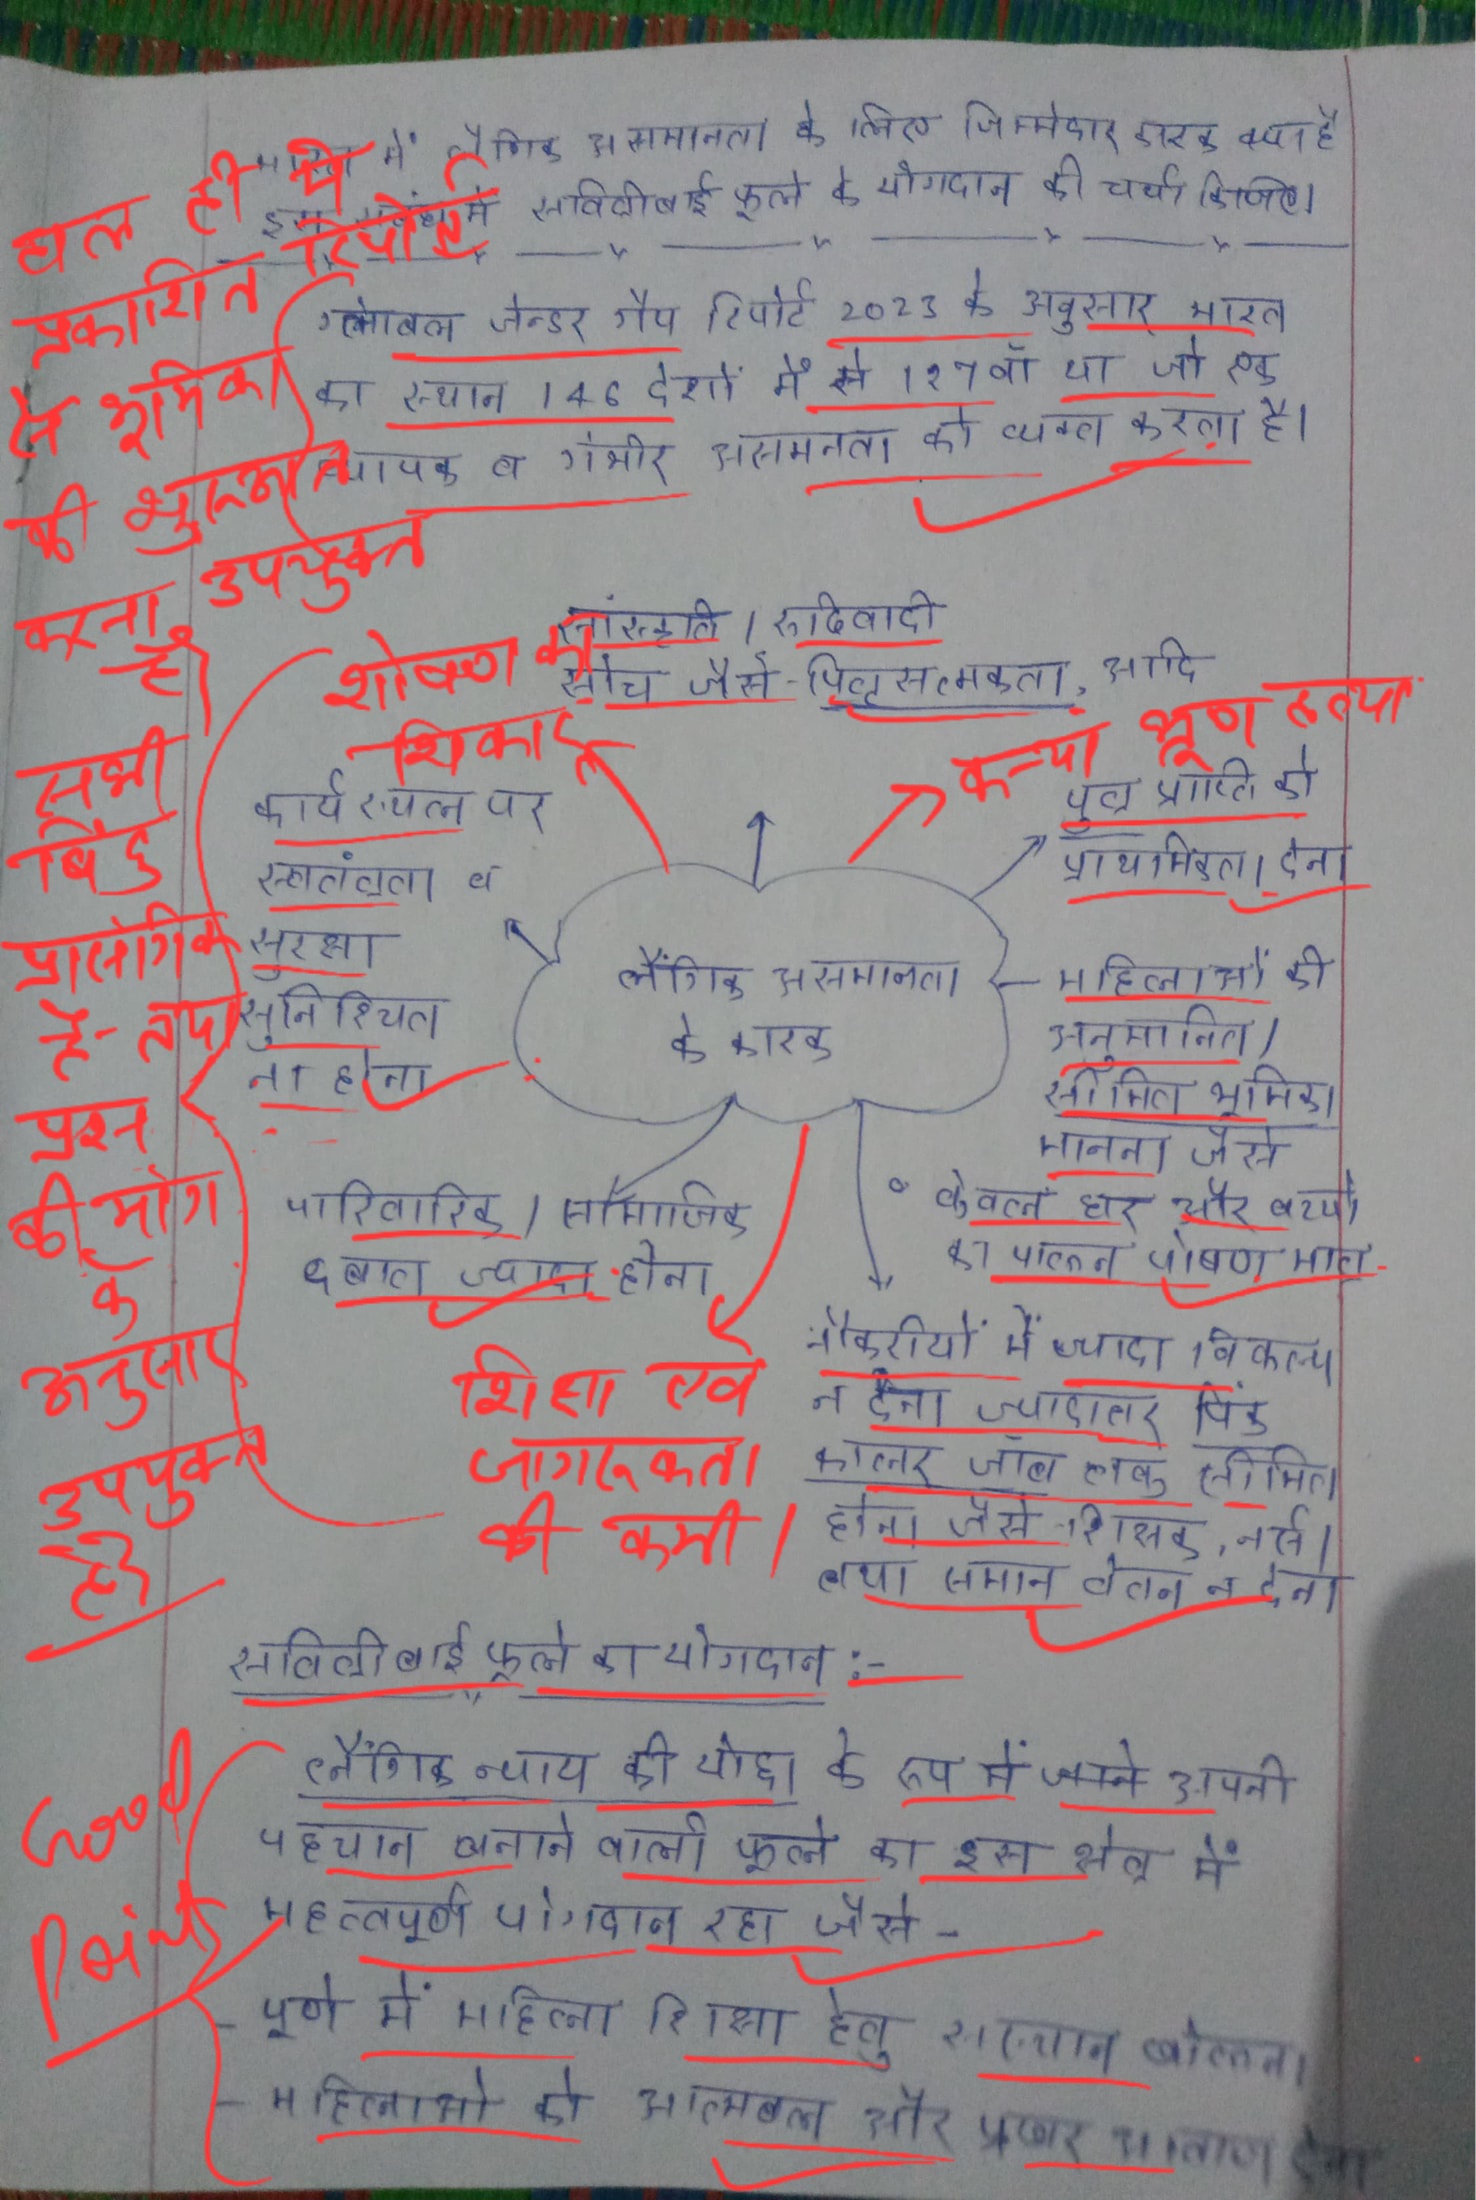 भारत में लैंगिक असमानता के लिए जिम्मेदार कारक क्या है
इस संबंध में सावित्रीबाई फूले के योगदान की चर्चा किजिए।
हाल ही में
प्रकाशित रिपोर्ट
से भूमिका
की शुरूआत
करना उपयुक्त
है।
ग्लोबल जेन्डर गैप रिपोर्ट 2023 के अनुसार भारत
का स्थान 146 देशों में से 127वाँ था जो एक
व्यापक व गंभीर असमनता को व्यक्त करता है।
सांस्कृति / रूढिवादी
सोच जैसे - पितृसत्मकता, आदि
शोषण का
शिकार
कन्या भ्रूण हत्या
पुत्र प्राप्ति को
प्राथमिकता देना
कार्य स्थल पर
स्वतंत्रता व
सुरक्षा
सुनिश्चित
ना होना
लैंगिक असमानता
के कारक
महिलाओं की
अनुमानित /
सीमित भूमिका
मानना जैसे
• केवल घर और बच्चो
का पालन पोषण मात्र
सभी
बिंदु
प्रासंगिक
है - तथा
प्रश्न
की मांग
के
अनुसार
उपयुक्त
है।
पारिवारिक / सामाजिक
दबाव ज्यादा होना
शिक्षा एवं
जागरूकता
की कमी।
नौकरीयों में ज्यादा विकल्प
न देना ज्यादातर पिंक
कालर जॉब तक सीमित
होना जैसे - शिक्षक, नर्स।
तथा समान वेतन न देना
सावित्रीबाई फूले का योगदान :-
Good
Points
लैंगिक न्याय की योद्धा के रूप में जाने अपनी
पहचान बनाने वाली फूले का इस क्षेत्र में
महत्वपूर्ण योगदान रहा जैसे -
- पूणे में महिला शिक्षा हेतु संस्थान खोलना।
- महिलाओ को आत्मबल और प्रखर आवाज देना